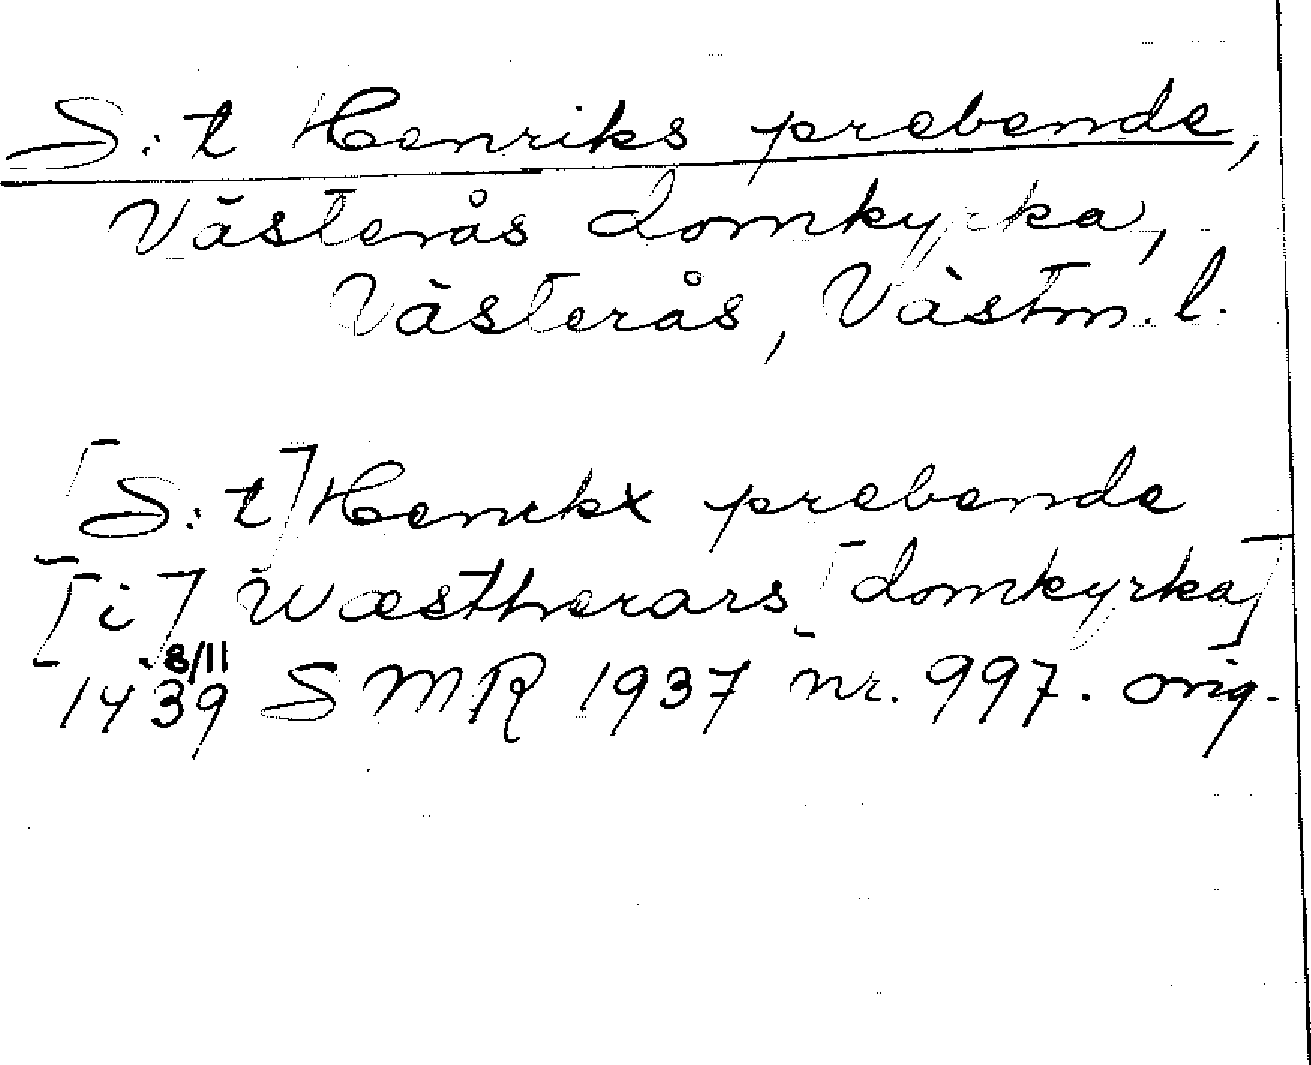 S:t Henriks prebende,
Västerås domkyrka,
Västerås, Västm. l.
[S:t] Henrikx prebende
[i] Wæstherars [domkyrka]
1439 8/11 SMR 1937 nr. 997. orig.